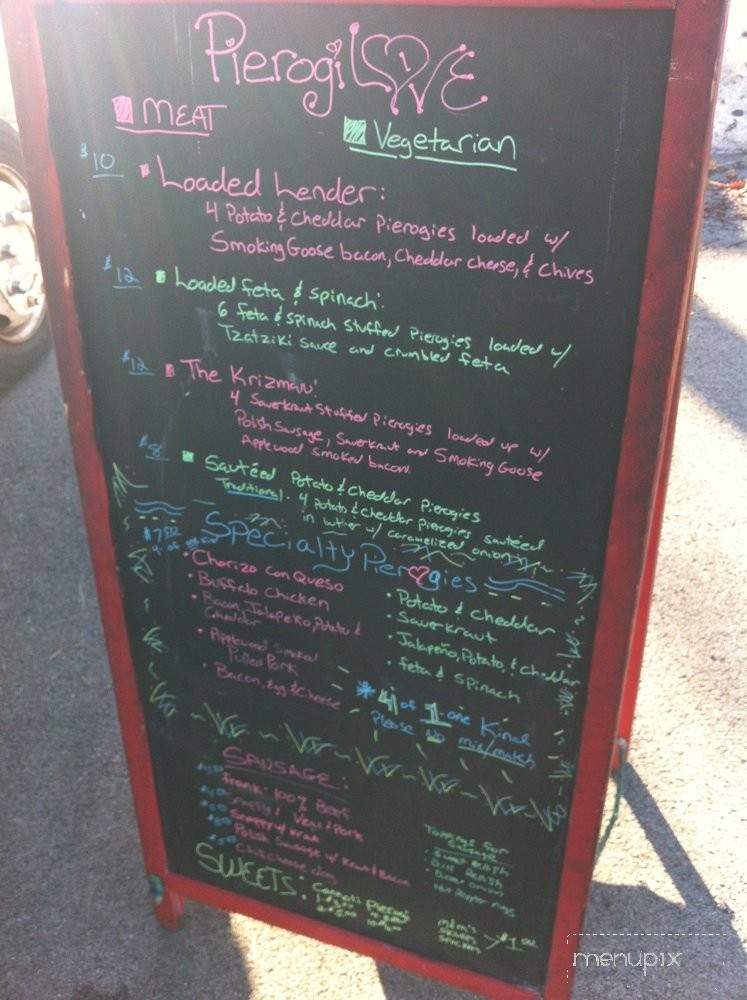 Pierogi LOVE
MEAT
Vegetarian
$10 Loaded Lender:
4 Potato & Cheddar Pierogies loaded w/
Smoking Goose bacon, Cheddar cheese, & Chives
$12 Loaded feta & spinach:
6 feta & spinach stuffed Pierogies loaded w/
Tzatziki Sauce and crumbled feta
$12 The Krizman:
4 Sauerkraut Stuffed Pierogies loaded up w/
Polish Sausage, Sauerkraut and Smoking Goose
Applewood smoked bacon.
$8 Sautéed Potato & Cheddar Pierogies
Traditional: 4 Potato & Cheddar Pierogies sautéed
in butter w/ caramelized onions
Specialty Pierogies
$7.50
4 of
Chorizo con Queso
Buffalo Chicken
Bacon, Jalapeño, Potato &
Cheddar
Applewood Smoked
Pulled Pork
Bacon, Egg & Cheese
Potato & Cheddar
Sauerkraut
Jalapeño, Potato, & Cheddar
feta & Spinach
*4 of 1 one Kind
Please no mix/match
SAUSAGE:
frank: 100% Beef
Veal & Pork
Snappy w/ Kraut
Polish Sausage w/ Kraut & Bacon
Chili cheese dog
Toppings for
Sweet Relish
Dill Relish
onions
Hot Pepper rings
SWEETS:
Cannoli Pierogi
m&m's
$1.00
menupix